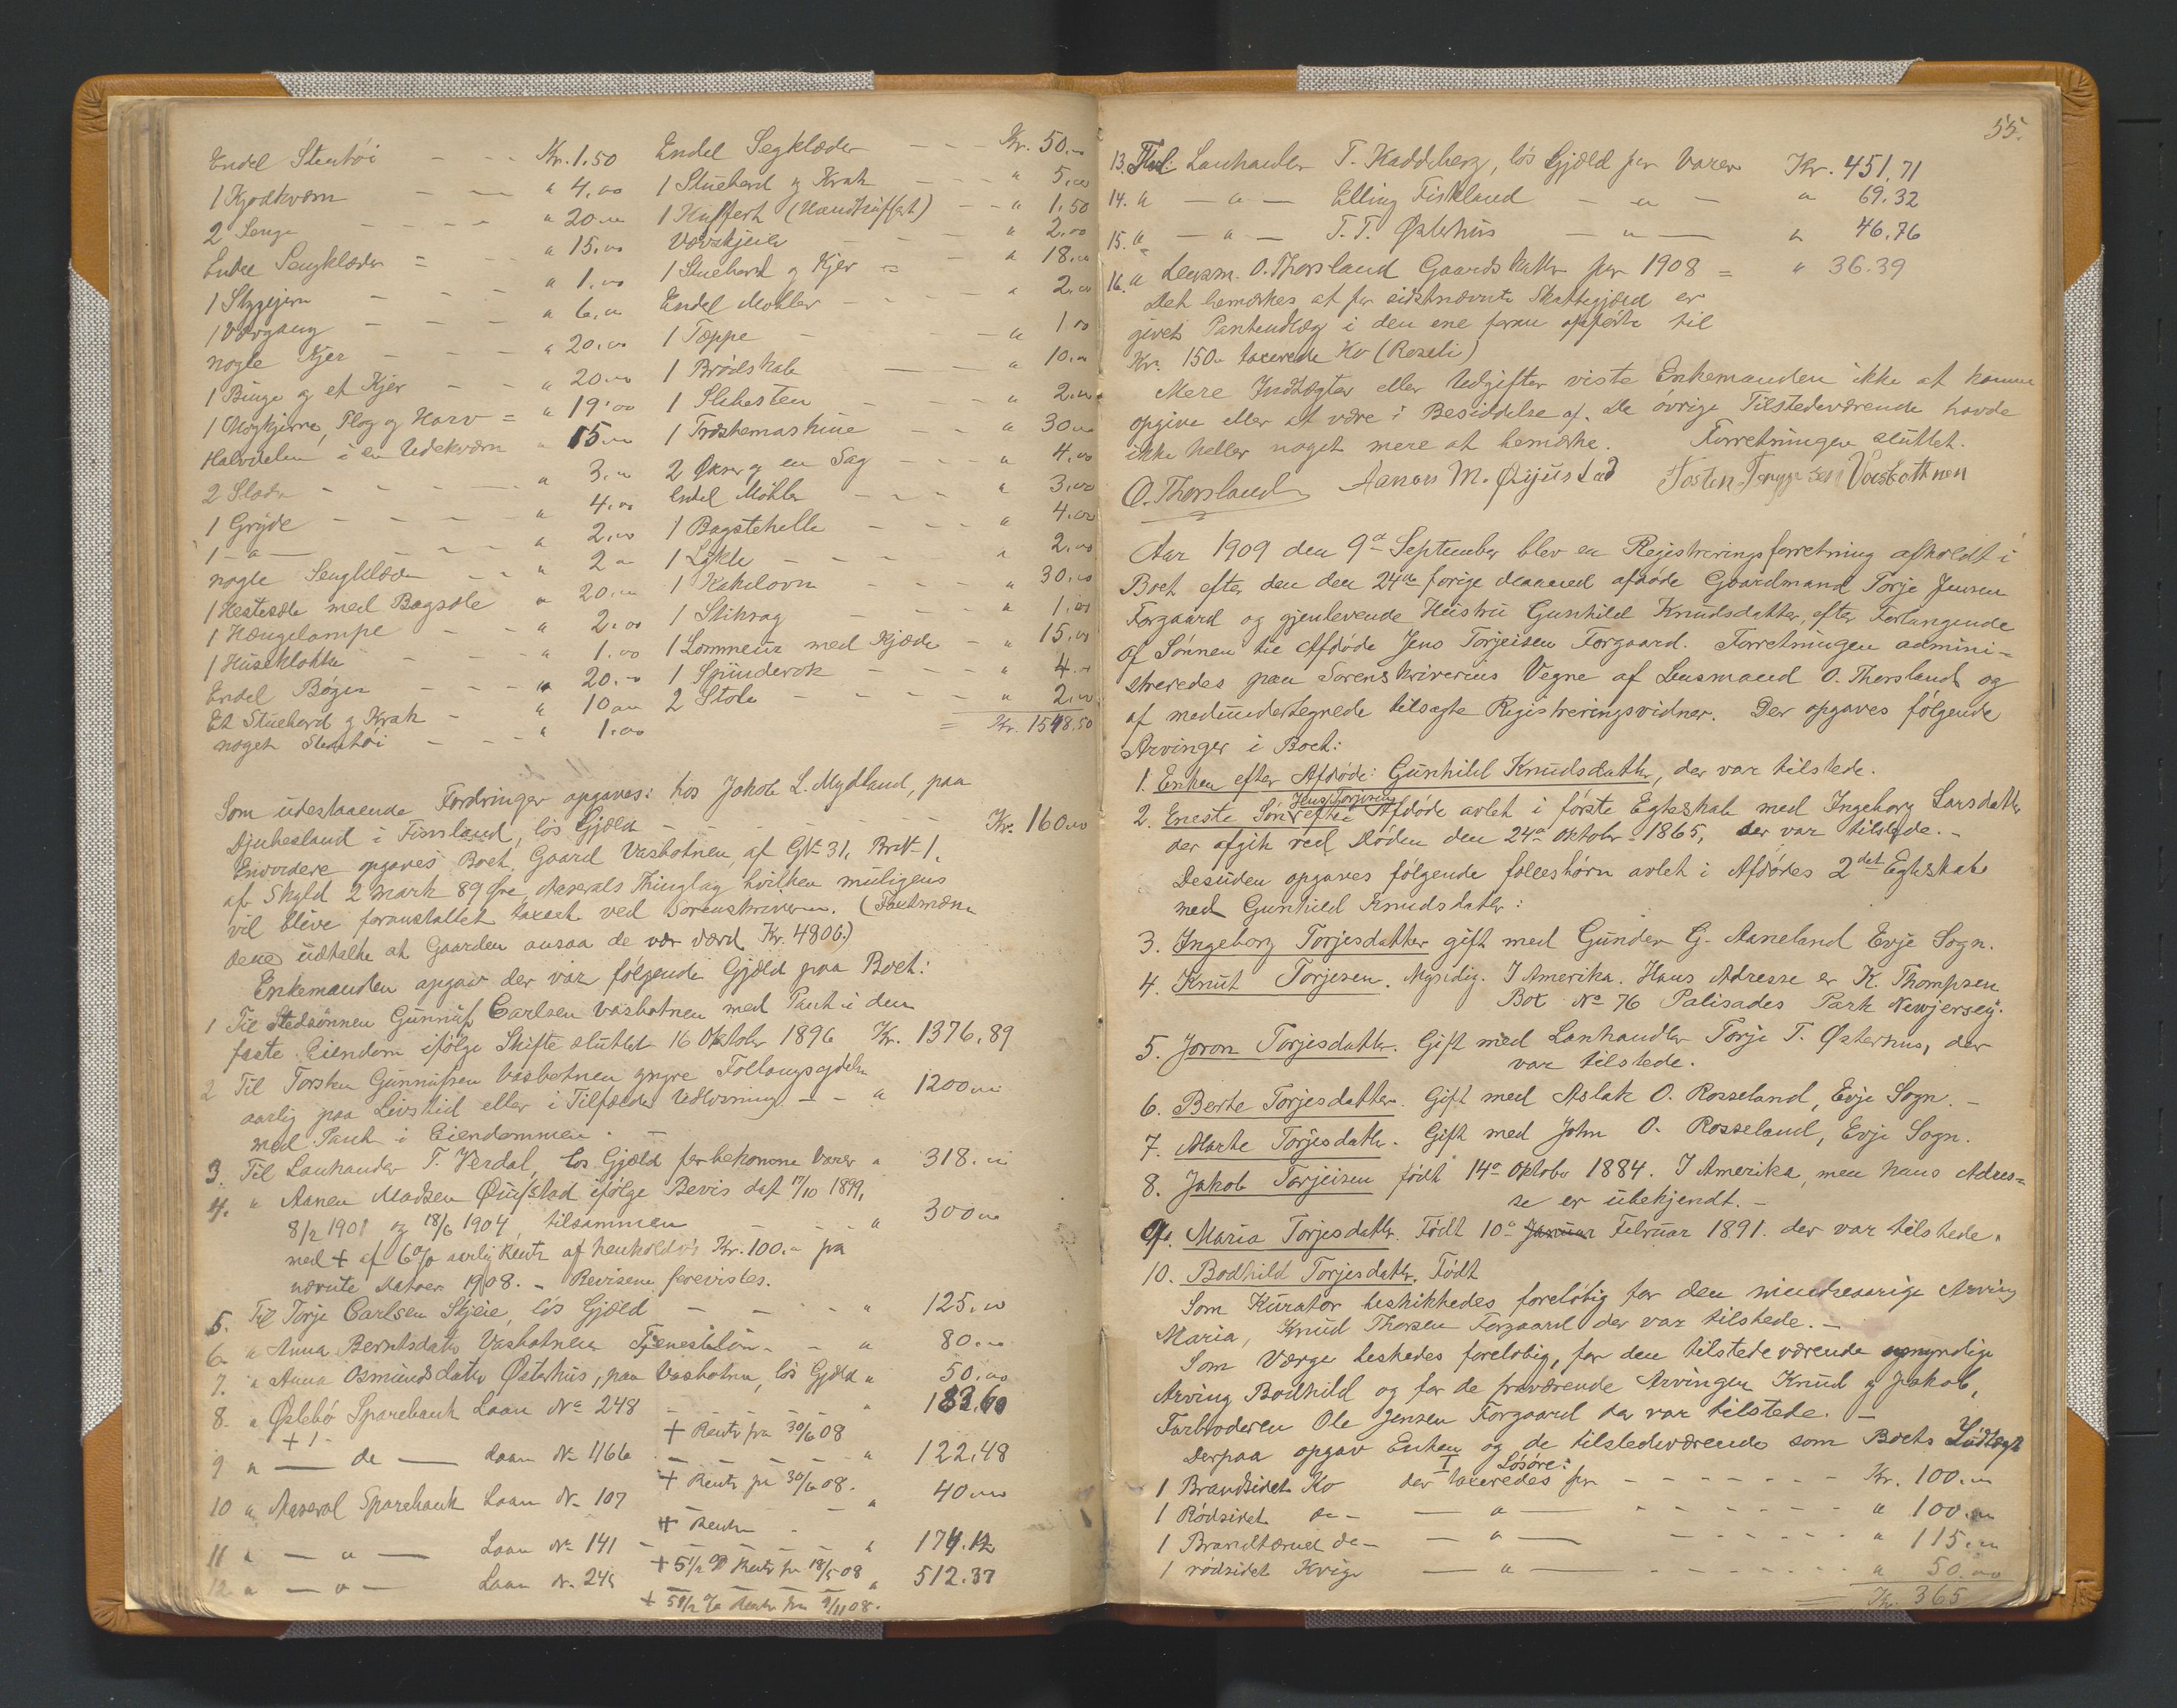 Endel Stentøi - - - Kr. 1.50
1 Kjødkværn - - " 4,00
2 Senge - - - " 20.00
Endel Sengklæder = " 15.00
1 Strygejern - - - " 1.00
1 Vævgang - - - " 6.00
nogle Kjer - - - " 20.00
1 Binge og et Kjer - - " 20.00
1 Møgkjerre, Plog og Harv = " 19.00
Halvdelen i en Udekværn " 15.00
2 Slæder - - - " 3.00
1 Gryde - - - " 4.00
1 - " - - - - " 2.00
nogle Sengklæder - - " 2.00
1 Hestesæle med Bagsæle " 20.00
1 Hængelampe - - " 2.00
1 Husklokke - - - " 1.00
Endel Bøger - - - " 20.00
Et Stuebord og Krak - " 10.00
noget Stentøi - - - " 1.00
Endel Segklæder - - - Kr. 50.00
1 Stuebord og Krak - - - " 5.00
1 Kuffert (Haandkuffert) - - " 1.50
Vævskjeer - - - " 2.00
1 Stuebord og Kjer = - " 18.00
Endel Møbler - - - " 2.00
1 Tæppe - - - " 1.00
1 Brødskab - - " 10.00
1 Slibesten - - - " 2.00
1 Træskemaskine - - " 30.00
2 Økser og en Sag - - - " 4.00
Endel Møbler - - - " 3.00
1 Bagstehelle - - - " 4.00
1 Lykte - - - - " 2.00
1 Kakelovn - - - - " 30.00
1 Stiksag - - - " 1.00
1 Lommeur med Kjæde - " 15.00
1 Spinderok - - - - " 4.00
2 Stole - - - - " 2.00
= Kr. 1548.50
Som udestaaende Fordringer opgaves: hos Jakob L. Mydland, paa
Djubesland i Finsland, løs Gjæld - - - - - - Kr. 160.00
Envordere opgaves Boet, Gaard Vasbotnen, af GN 31, BrN 1,
af Skyld 2 Mark 89 Øre, Aaserals Thinglag hvilken muligens
vil blive foranstaltet taxeret ved Sorenskriveren. (Taxtmæn
dene udtalte at Gaarden ansaa de vær værd Kr. 4800.)
Enkemanden opgav der var følgende Gjæld paa Boet:
1 Til Stedsønnen Gunnuf Carlsen Vasbotnen med Pant i den
faste Eiendom ifølge Skifte sluttet 16 Oktober 1896 Kr. 1376,89
2 Til Torsten Gunnufsen Vasbotnen yngre Follougsydelse
aarlig paa Livstid eller i Tilfælde Udløsning - - " 1200.00
med Pant i Eiendommen. -
3. Til Lanhandler T. Verdal, løs Gjæld for bekomne Varer " 318.00
4. " Aanen Madsen Øuystad ifølge Bevis dat 17/10 1899,
8/2 1901 og 18/6 1904, tilsammen - - - " 300.00
med + af 6% aarlig Rente af henholdsvis Kr. 100.00 fra
nævnte Datoer 1908. - Beviserne forevistes.
5. Til Torje Carlsen Skjeie, løs Gjæld - - - " 125.00
6. " Anna Berntsdatr Vasbotnen Tjenestløn - - " 80.00
7. " Anna Osmundsdatr Østerhus, paa Vasbotnen, løs Gjæld " 50.00
8. " Øslebø Sparebank Laan No 248 - - - - " 183.60
+ Rente fra 30/6 08
9 " — do — Laan No 1166 - - - - " 122,48
+ Rente fra 30/6 08.
10 " Aaseral Sparebank Laan No 107 - " 40.00
+ Rente
11 " — " — Laan No 141 - - - - " 174.12
+ 5 1/2 % Rente fra 18/5 08
12 " — " — Laan No 245 " 512.37
+ 5 1/2 % Rente fra 9/11 08.
55.
13. Til Lanhandler T. Kaddeberg, løs Gjæld for Varer Kr. 451,71
14. " — " — Elling Fiskland - " - " 69.32
15. " — " — T. T. Østerhus — " — " 46,76
16. " Lensm. O. Thorsland Gaardskatter for 1908 = " 36.39
Det bemærkes at for sidstnævnte Skattegjæld er
givet Pantudlæg i den ene foran opførte til
Kr. 150.00 taxerede Ko (Roseli)
Mere Indtægter eller Udgifter viste Enkemanden ikke at kunne
opgive eller at være i Besiddelse af. De øvrige Tilstedeværende havde
ikke heller noget mere at bemærke. Forretningen sluttet.
O. Thorsland Aanon M. Øyustad Tosten Vasbothnen
Aar 1909 den 9de September blev en Registreringsforretning afholdt i
Boet efter den den 24de forige Maaned afdøde Gaardmand Torje Jensen
Forgaard og gjenlevende Hustru Gunhild Knudsdatter, efter Forlangende
af Sønnen til Afdøde Jens Torjeisen Forgaard. Forretningen admini-
streredes paa Sorenskriverens Vegne af Lensmand O. Thorsland og
af medundertegnede tilsagte Registreringsvidner. Der opgaves følgende
Arvinger i Boet:
1. Enken efter Afdøde: Gunhild Knudsdatter, der var tilstede.
2. Eneste Søn Jens Torjesen efter Afdøde avlet i første Egteskab med Ingeborg Larsdatter
der afgik ved Døden den 24de Oktober 1865, der var tilstede. -
Desuden opgaves følgende fællesbørn avlet i Afdødes 2det Egteskab
med Gunhild Knudsdatter:
3. Ingeborg Torjesdatter gift med Gunder G. Aaneland Evje Sogn.
4. Knut Torjesen. Myndig. I Amerika. Hans Adresse er K. Thompsen
Box No 76 Palisades Park Newjersey.
5. Joron Torjesdatter. Gift med Lanhandler Torje T. Østerhus, der
var tilstede.
6. Berte Torjesdatter. Gift med Aslak O. Rosseland, Evje Sogn. -
7. Marte Torjesdatter. Gift med John O. Rosseland, Evje Sogn.
8. Jakob Torjeisen født 14de Oktober 1884. I Amerika, men hans Adres=
se er ubekjendt. -
9. Maria Torjesdatter. Født 10de Januar Februar 1891. der var tilstede.
10. Bodhild Torjesdatter. Født
Som Kurator beskikkedes foreløbig for den mindreaarige Arving
Maria, Knud Thorsen Forgaard der var tilstede. -
Som Værge beskedes foreløbig, for den tilstedeværende umyndige
Arving Bodhild og for de fraværende Arvinger Knud og Jakob,
Farbroderen Ole Jensen Forgaard der var tilstede. -
Derpaa opgav Enken og de tilstedeværende som Boets Indtægt
I Løsøre:
1 Brandsidet Ko der taxeredes for - - - - - - Kr. 100.00
1 Rødsidet do - — " — - - - - - - " 100.00
1 Brandtærnet do - — " — - - - - - - " 115.00
1 rødsidet Kvige — " — - - - - - - " 50.00
Kr. 365